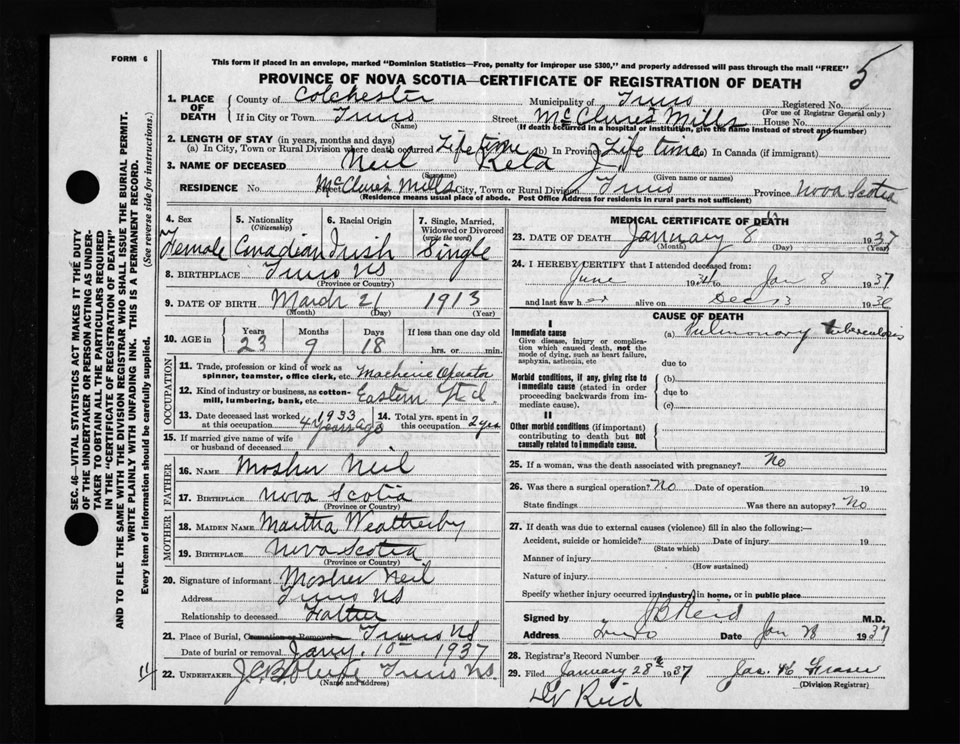 FORM 6
5
This form if placed in an envelope, marked "Dominion Statistics—Free, penalty for improper use $300," and properly addressed will pass through the mail "FREE"
PROVINCE OF NOVA SCOTIA—CERTIFICATE OF REGISTRATION OF DEATH
1. PLACE OF DEATH County of Colchester Municipality of Truro Registered No.
(For use of Registrar General only)
If in City or Town Truro Street McClure's Mills House No.
(Name) (If death occurred in a hospital or institution, give the name instead of street and number)
2. LENGTH OF STAY (in years, months and days)
(a) In City, Town or Rural Division where death occurred Life time (b) In Province Life time (c) In Canada (if immigrant)
3. NAME OF DECEASED Neil Reta J
(Surname) (Given name or names)
RESIDENCE No. Street McClure's Mills City, Town or Rural Division Truro Province Nova Scotia
(Residence means usual place of abode. Post Office Address for residents in rural parts not sufficient)
SEC. 46—VITAL STATISTICS ACT MAKES IT THE DUTY
OF THE UNDERTAKER OR PERSON ACTING AS UNDER-
TAKER TO OBTAIN ALL THE PARTICULARS REQUIRED
IN THE "CERTIFICATE OF REGISTRATION OF DEATH"
AND TO FILE THE SAME WITH THE DIVISION REGISTRAR WHO SHALL ISSUE THE BURIAL PERMIT.
WRITE PLAINLY WITH UNFADING INK. THIS IS A PERMANENT RECORD.
Every item of information should be carefully supplied. (See reverse side for instructions.)
4. Sex Female
5. Nationality (Citizenship) Canadian
6. Racial Origin Irish
7. Single, Married, Widowed or Divorced (write the word) Single
8. BIRTHPLACE Truro NS
(Province or County)
9. DATE OF BIRTH March 21 1913
(Month) (Day) (Year)
10. AGE in Years Months Days If less than one day old
23 9 18 hrs. or min.
OCCUPATION
11. Trade, profession or kind of work as spinner, teamster, office clerk, etc. Machine Operator
12. Kind of industry or business, as cotton-mill, lumbering, bank, etc. Eastern
13. Date deceased last worked at this occupation 1933 4 years ago
14. Total yrs. spent in this occupation 2 yrs
15. If married give name of wife or husband of deceased
FATHER
16. NAME Mosher Neil
17. BIRTHPLACE Nova Scotia
(Province or Country)
MOTHER
18. MAIDEN NAME Martha Weatherby
19. BIRTHPLACE Nova Scotia
(Province or Country)
20. Signature of informant Mosher Neil
Address Truro NS
Relationship to deceased Father
21. Place of Burial, Cremation or Removal Truro NS
Date of burial or removal Jany. 10 1937
22. UNDERTAKER Truro NS.
(Name and address)
MEDICAL CERTIFICATE OF DEATH
23. DATE OF DEATH January 8 1937
(Month) (Day) (Year)
24. I HEREBY CERTIFY that I attended deceased from:
June 1934 to Jan 8 1937
and last saw her alive on Dec 13 1936
CAUSE OF DEATH
I
Immediate cause (a) Pulmonary tuberculosis
Give disease, injury or complication which caused death, not the mode of dying, such as heart failure, asphyxia, asthenia, etc
due to
Morbid conditions, if any, giving rise to immediate cause (stated in order proceeding backwards from immediate cause). (b)
due to
(c)
II
Other morbid conditions (if important) contributing to death but not causally related to immediate cause.
25. If a woman, was the death associated with pregnancy? No
26. Was there a surgical operation? No Date of operation 19
State findings Was there an autopsy? No
27. If death was due to external causes (violence) fill in also the following:—
Accident, suicide or homicide? Date of injury 19
(State which)
Manner of injury
(How sustained)
Nature of injury
Specify whether injury occurred in industry, in home, or in public place
Signed by J B Reid M.D.
Address Truro Date Jan 28 1937
28. Registrar's Record Number
29. Filed January 28th 1937 Jas. Fraser
(Division Registrar)
Reid